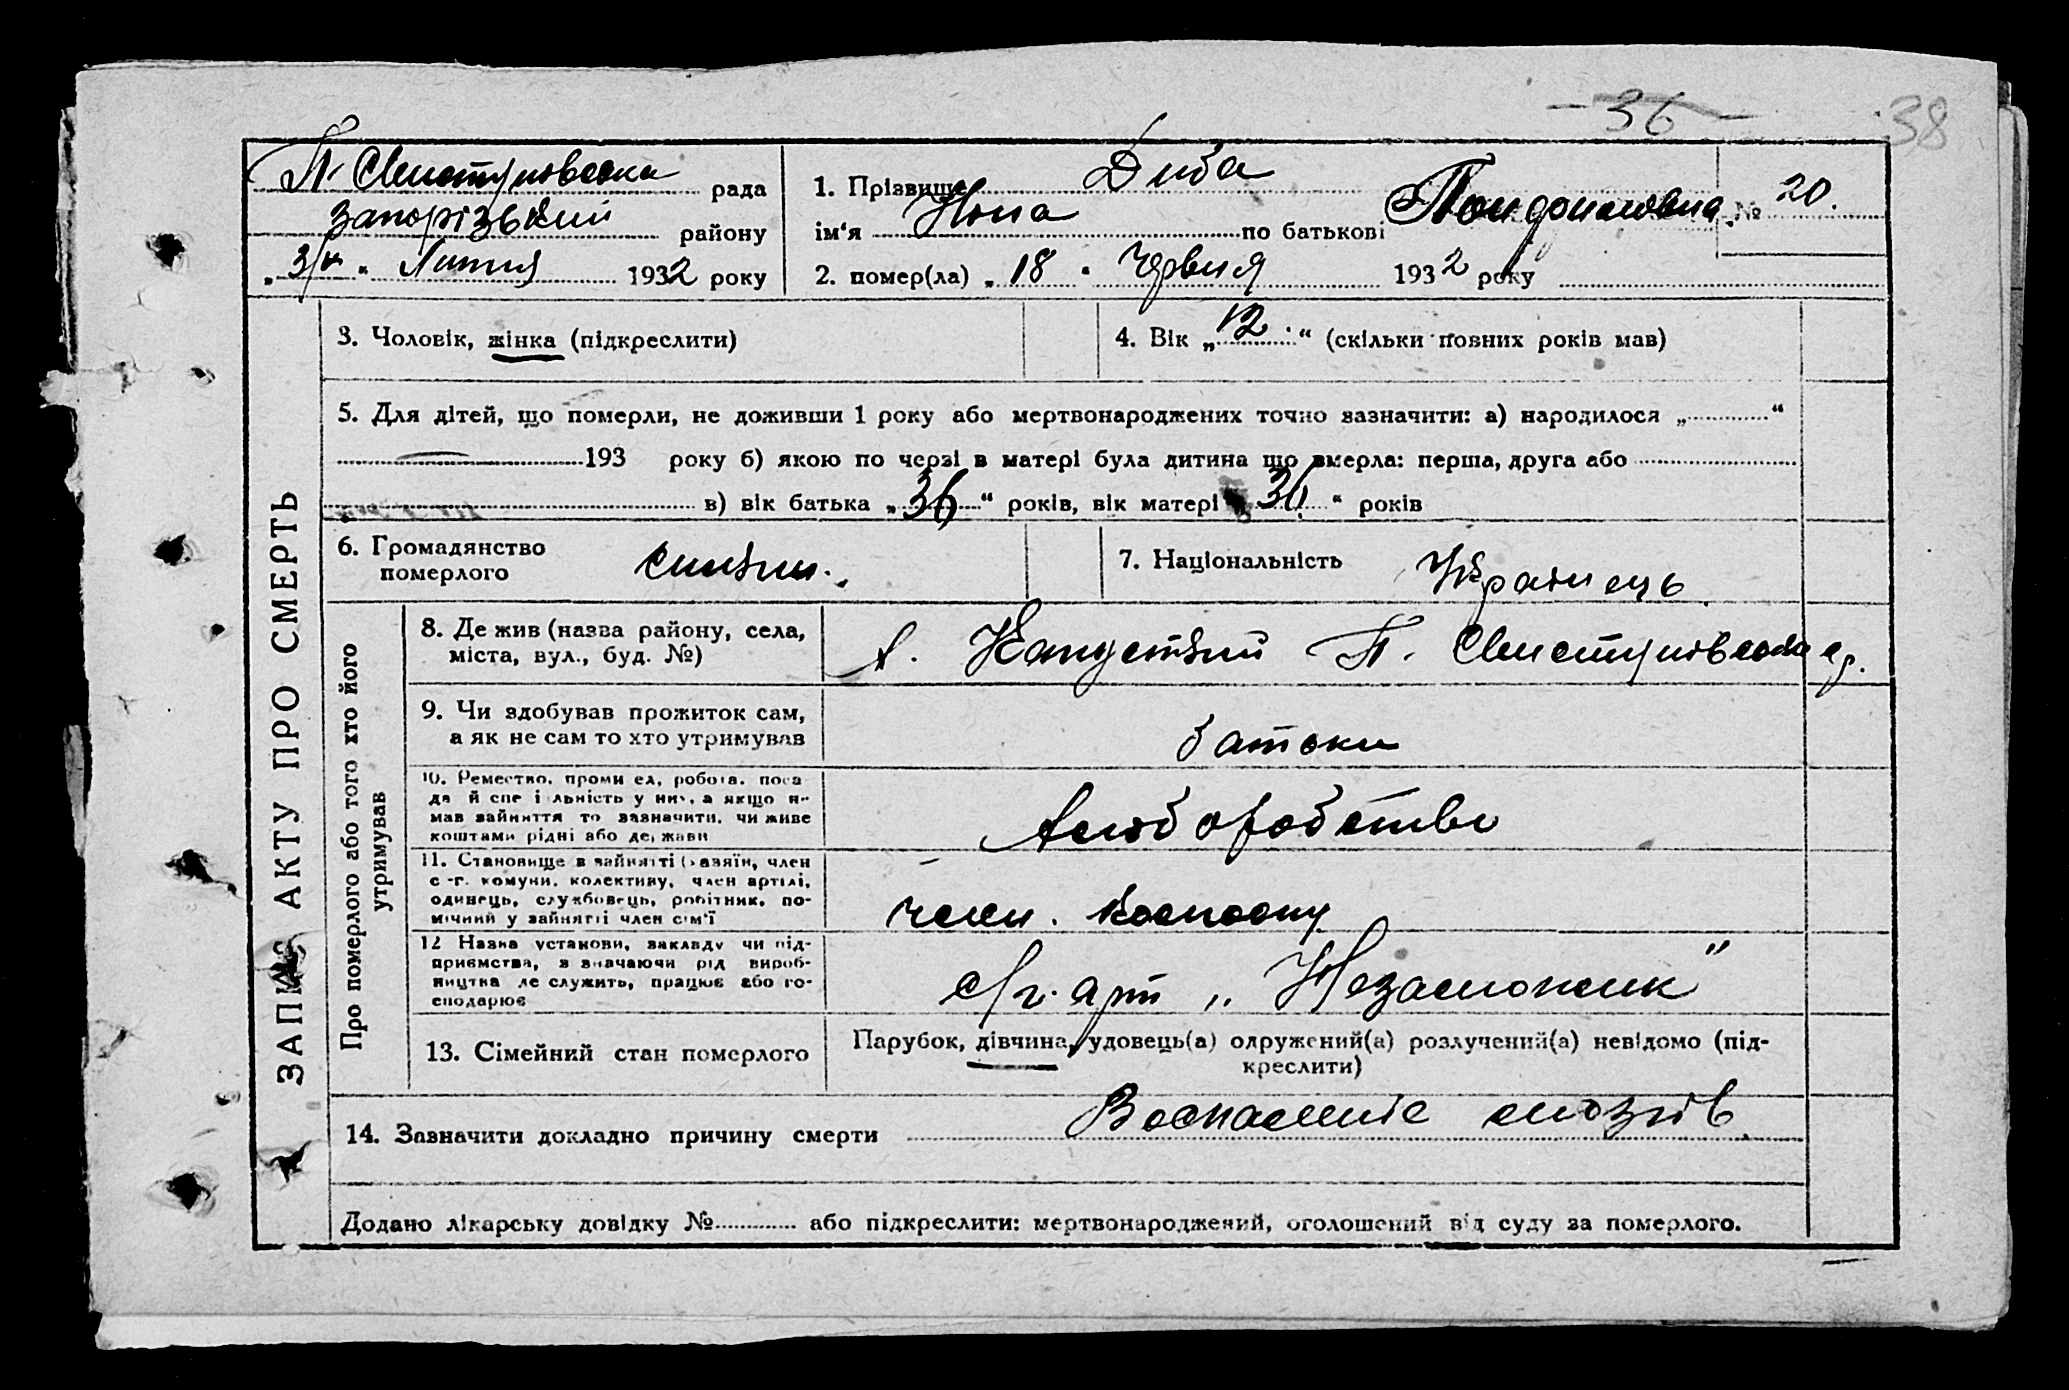 36
38
П. Свистуновська рада
Запорізький району
„ 3/н “ Липня 1932 року
1. Прізвище Диба
ім‘я по батькові № 20.
2. помер(ла) „ 18 “ Червня 1932 року
ЗАПИС АКТУ ПРО СМЕРТЬ
3. Чоловік, жінка (підкреслити)
4. Вік „ 12 “ (скільки повних років мав)
5. Для дітей, що померли, не доживши 1 року або мертвонароджених точно зазначити: а) народилося „ “
193 року б) якою по черзі в матері була дитина що вмерла: перша, друга або
в) вік батька „ 36 “ років, вік матері „ 36 “ років
6. Громадянство
померлого
7. Національність Українець
Про померлого або того хто його
утримував
8. Де жив (назва району, села,
міста, вул., буд. №)
Капустяний П. Свистуновської с/р.
9. Чи здобував прожиток сам,
а як не сам то хто утримував
батьки
10. Ремество, промисел, робота, поса-
да й спеціальність у них, а якщо не
мав зайняття то зазначити, чи живе
коштами рідні або держави
хлоборобство
11. Становище в зайнятті (хазяїн, член
с.-г. комуни, колективу, член артілі,
одинець, службовець, робітник, по-
мічний у зайнятті член сім'ї
член. колгоспу
12 Назва установи, закладу чи під-
приємства, зазначаючи рід вироб-
ництва де служить, працює або го-
сподарює
с/г. арт „Незаможник”
13. Сімейний стан померлого
Парубок, дівчина, удовець(а) одружений(а) розлучений(а) невідомо (під-
креслити)
14. Зазначити докладно причину смерти Воспаленіе мозгів
Додано лікарську довідку № або підкреслити: мертвонароджений, оголошений від суду за померлого.